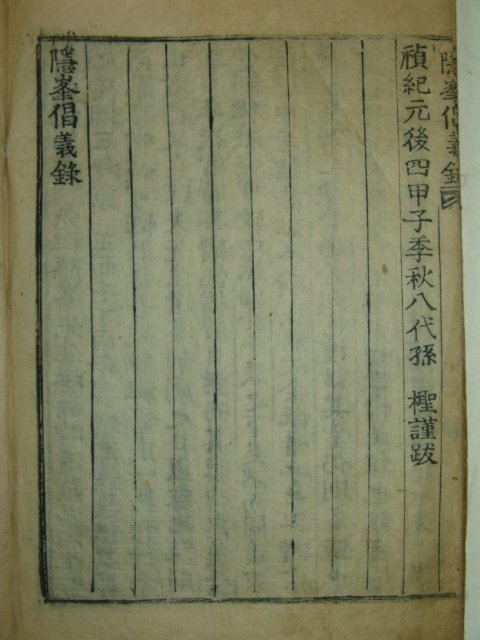 隱峯倡義錄
禎紀元後四甲子季秋八代孫 檉謹跋
隱峯倡義錄